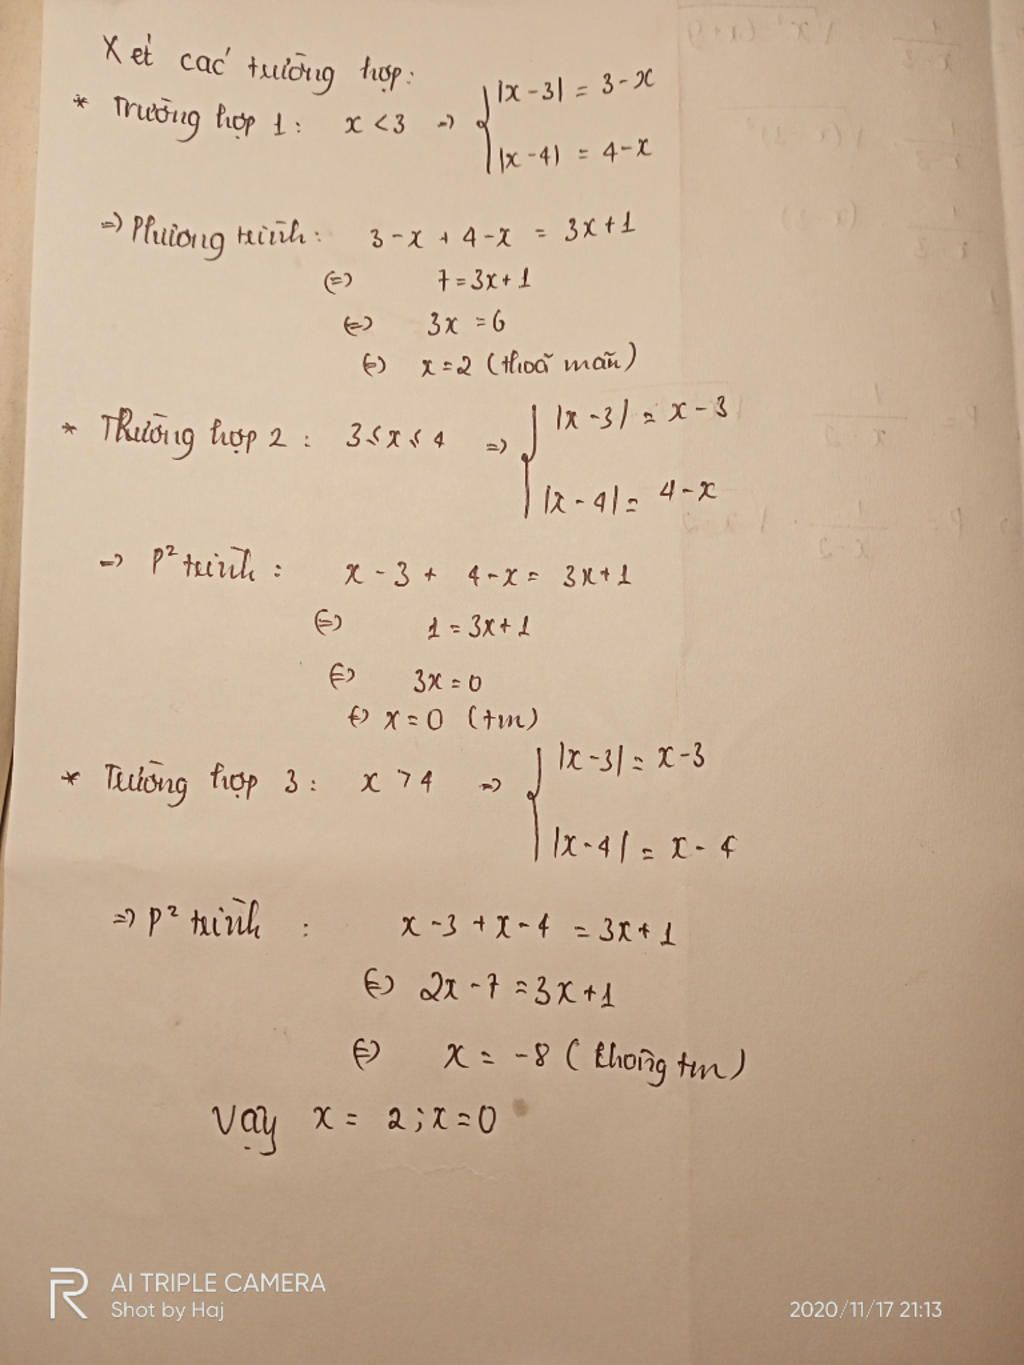 Xét các trường hợp:
* Trường hợp 1: x < 3 => { |x - 3| = 3 - x
|x - 4| = 4 - x
=> Phương trình: 3 - x + 4 - x = 3x + 1
(=) 7 = 3x + 1
(=) 3x = 6
(=) x = 2 (thoả mãn)
* Trường hợp 2: 3 ≤ x ≤ 4 => { |x - 3| = x - 3
|x - 4| = 4 - x
=> P² trình: x - 3 + 4 - x = 3x + 1
(=) 1 = 3x + 1
(=) 3x = 0
(=) x = 0 (tm)
* Trường hợp 3: x > 4 => { |x - 3| = x - 3
|x - 4| = x - 4
=> P² trình : x - 3 + x - 4 = 3x + 1
(=) 2x - 7 = 3x + 1
(=) x = -8 (không tm)
Vậy x = 2; x = 0
AI TRIPLE CAMERA
Shot by Haj
2020/11/17 21:13